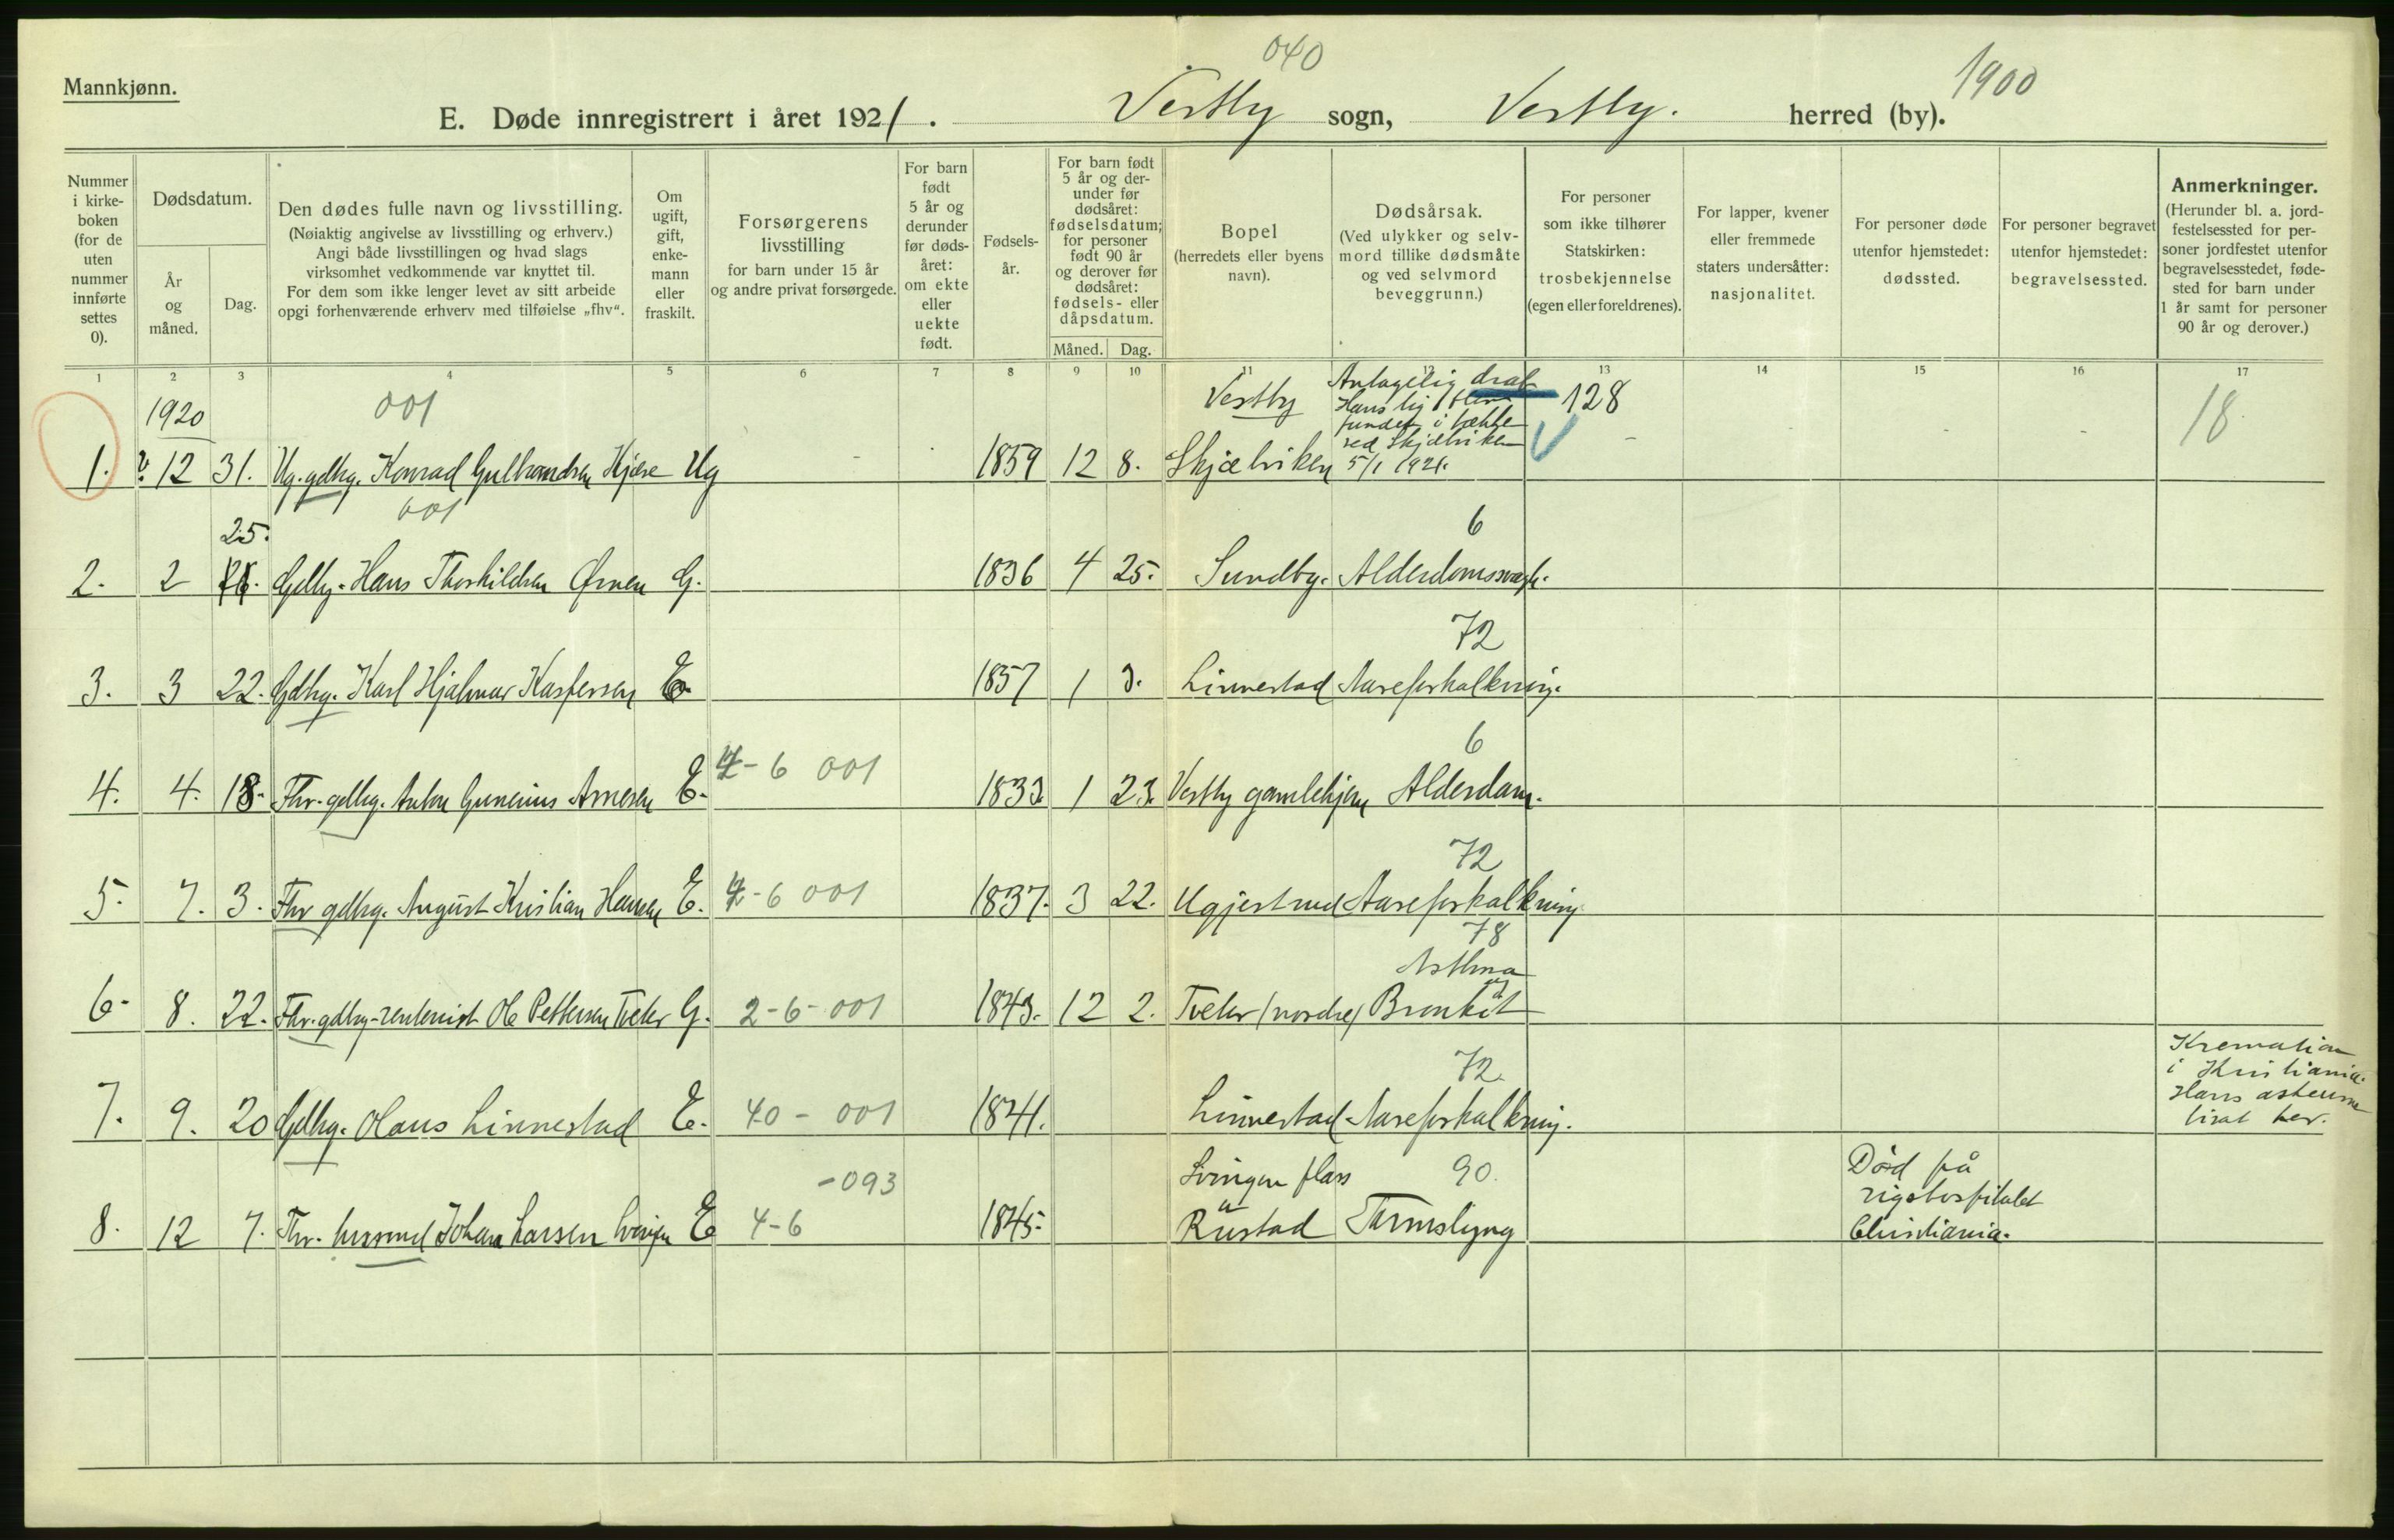 040
1900
Mannkjønn.
E. Døde innregistrert i året 1921. Vestby sogn, Vestby. herred (by).
Nummer
i kirke-
boken
(for de
uten
nummer
innførte
settes
0).
Dødsdatum.
År
og
måned.
Dag.
Den dødes fulle navn og livsstilling.
(Nøiaktig angivelse av livsstilling og erhverv.)
Angi både livsstillingen og hvad slags
virksomhet vedkommende var knyttet til.
For dem som ikke lenger levet av sitt arbeide
opgi forhenværende erhverv med tilføielse „fhv“.
Om
ugift,
gift,
enke-
mann
eller
fraskilt.
Forsørgerens
livsstilling
for barn under 15 år
og andre privat forsørgede.
For barn
født
5 år og
derunder
før døds-
året:
om ekte
eller
uekte
født.
Fødsels-
år.
For barn født
5 år og der-
under før
dødsåret:
fødselsdatum;
for personer
født 90 år
og derover før
dødsåret:
fødsels- eller
dåpsdatum.
Måned. Dag.
Bopel
(herredets eller byens
navn).
Dødsårsak.
(Ved ulykker og selv-
mord tillike dødsmåte
og ved selvmord
beveggrunn.)
For personer
som ikke tilhører
Statskirken:
trosbekjennelse
(egen eller foreldrenes).
For lapper, kvener
eller fremmede
staters undersåtter:
nasjonalitet.
For personer døde
utenfor hjemstedet:
dødssted.
For personer begravet
utenfor hjemstedet:
begravelsessted.
Anmerkninger.
(Herunder bl. a. jord-
festelsessted for per-
soner jordfestet utenfor
begravelsesstedet, føde-
sted for barn under
1 år samt for personer
90 år og derover.)
1 2 3 4 5 6 7 8 9 10 11 12 13 14 15 16 17
1920 001 Vestby Antagelig drab 128 18
Hans lig blev
fundet i bække
ved Skjælviken
1. 12 31. Ug. gdbg. Konrad Gulbrandsen Kjære Ug - - 1859 12 8. Skjælviken 5/1 1921. - - -
001
25. 6
2. 2 Gdbg. Hans Thorkildsen G. 1836 4 25. Sundby. Alderdomssvagh.
72
3. 3 22. Gdbg. Karl Hjalmar Kaspersen E. 1857 1 3. Linnestad Aareforkalkning.
6
4. 4. 18. Fhv. gdbg. Anton Gunerius Arnesen E. 4-6 001 1833 1 23. Vestby gamlehjem Alderdom.
72
5. 7. 3. Fhv gdbg. August Kristian Hansen E. 4-6 001 1837. 3 22. Ugjestrud Aareforkalkning
78
Asthma
6. 8. 22. Fhv. gdbg-rentenist Ole Pettersen Tveter G. 2-6-001 1843. 12 2. Tveter (nordre) Bronkit
72. Kremation
i Kristiania.
Hans
7. 9. 20 Gdbg. Olaus Linnestad E. 40-001 1841. Linnestad Aareforkalkning.
-093 plass 90. Død på
rigshospitalet
8. 12 7. Fhv. husmand Johan Larsen E 4-6 1845. Rustad Tarmslyng Christiania.